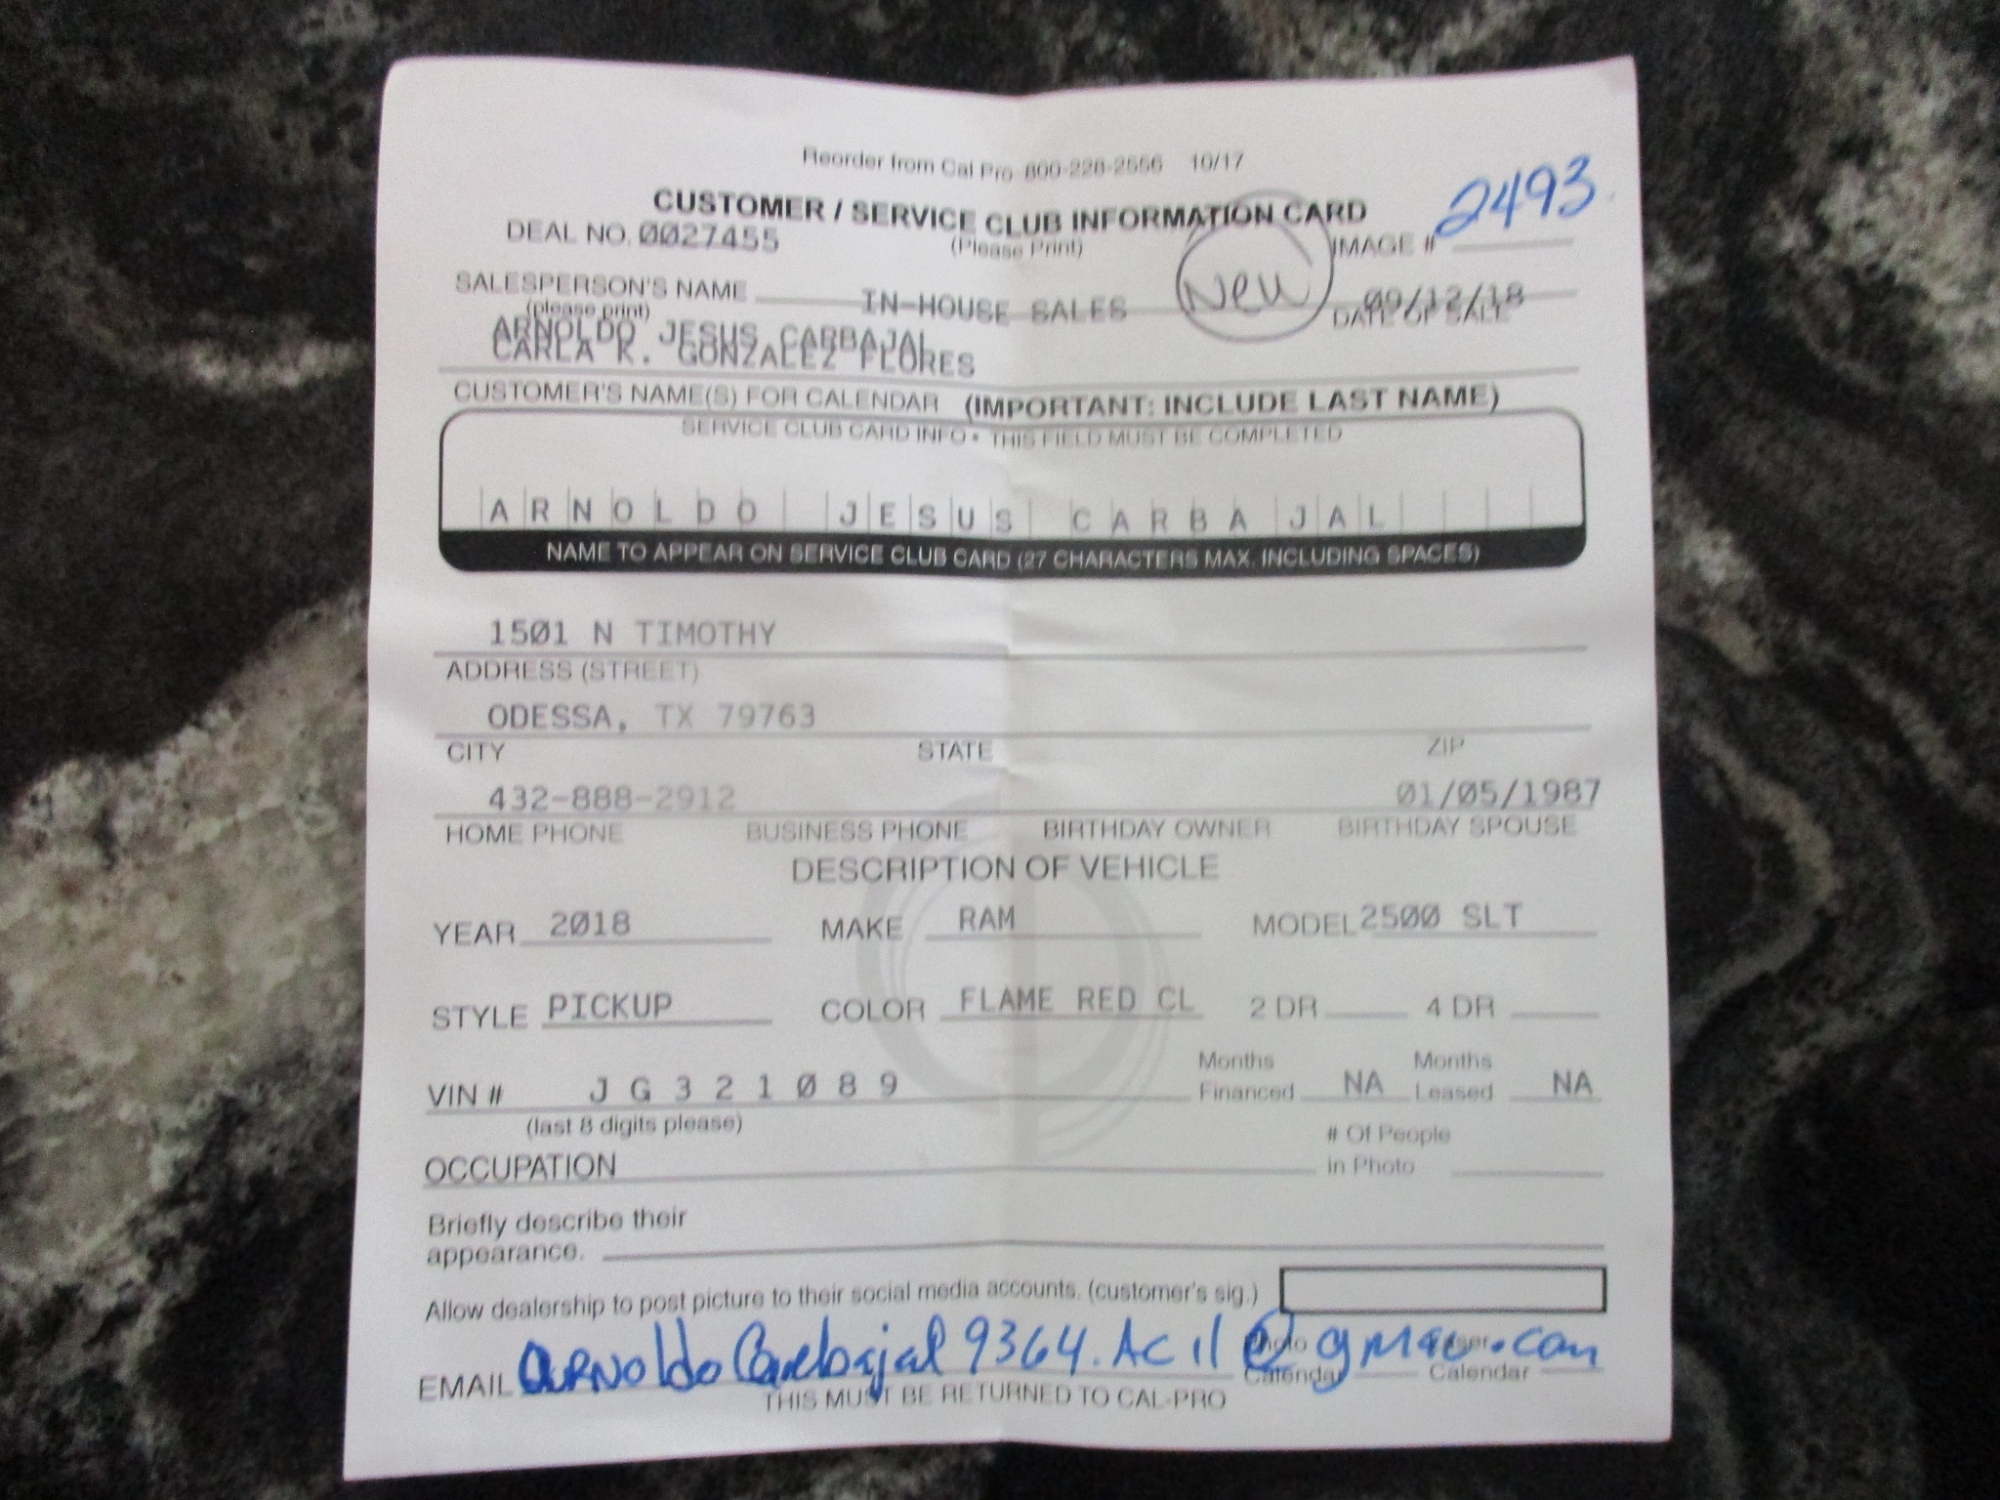 Reorder from Cal Pro 800-228-2556 10/17
CUSTOMER / SERVICE CLUB INFORMATION CARD
(Please Print)
DEAL NO. 0027455
IMAGE # 2493
SALESPERSON'S NAME IN-HOUSE SALES
(please print)
New
09/12/18
DATE OF SALE
ARNOLDO JESUS CARBAJAL
CARLA K. GONZALEZ FLORES
CUSTOMER'S NAME(S) FOR CALENDAR (IMPORTANT: INCLUDE LAST NAME)
SERVICE CLUB CARD INFO • THIS FIELD MUST BE COMPLETED
ARNOLDO JESUS CARBAJAL
NAME TO APPEAR ON SERVICE CLUB CARD (27 CHARACTERS MAX. INCLUDING SPACES)
1501 N TIMOTHY
ADDRESS (STREET)
ODESSA, TX 79763
CITY STATE ZIP
432-888-2912 01/05/1987
HOME PHONE BUSINESS PHONE BIRTHDAY OWNER BIRTHDAY SPOUSE
DESCRIPTION OF VEHICLE
YEAR 2018 MAKE RAM MODEL 2500 SLT
STYLE PICKUP COLOR FLAME RED CL 2 DR 4 DR
VIN # JG321089 Months Financed NA Months Leased NA
(last 8 digits please)
OCCUPATION # Of People in Photo
Briefly describe their
appearance.
Allow dealership to post picture to their social media accounts. (customer's sig.)
EMAIL Photo Calendar Calendar
THIS MUST BE RETURNED TO CAL-PRO